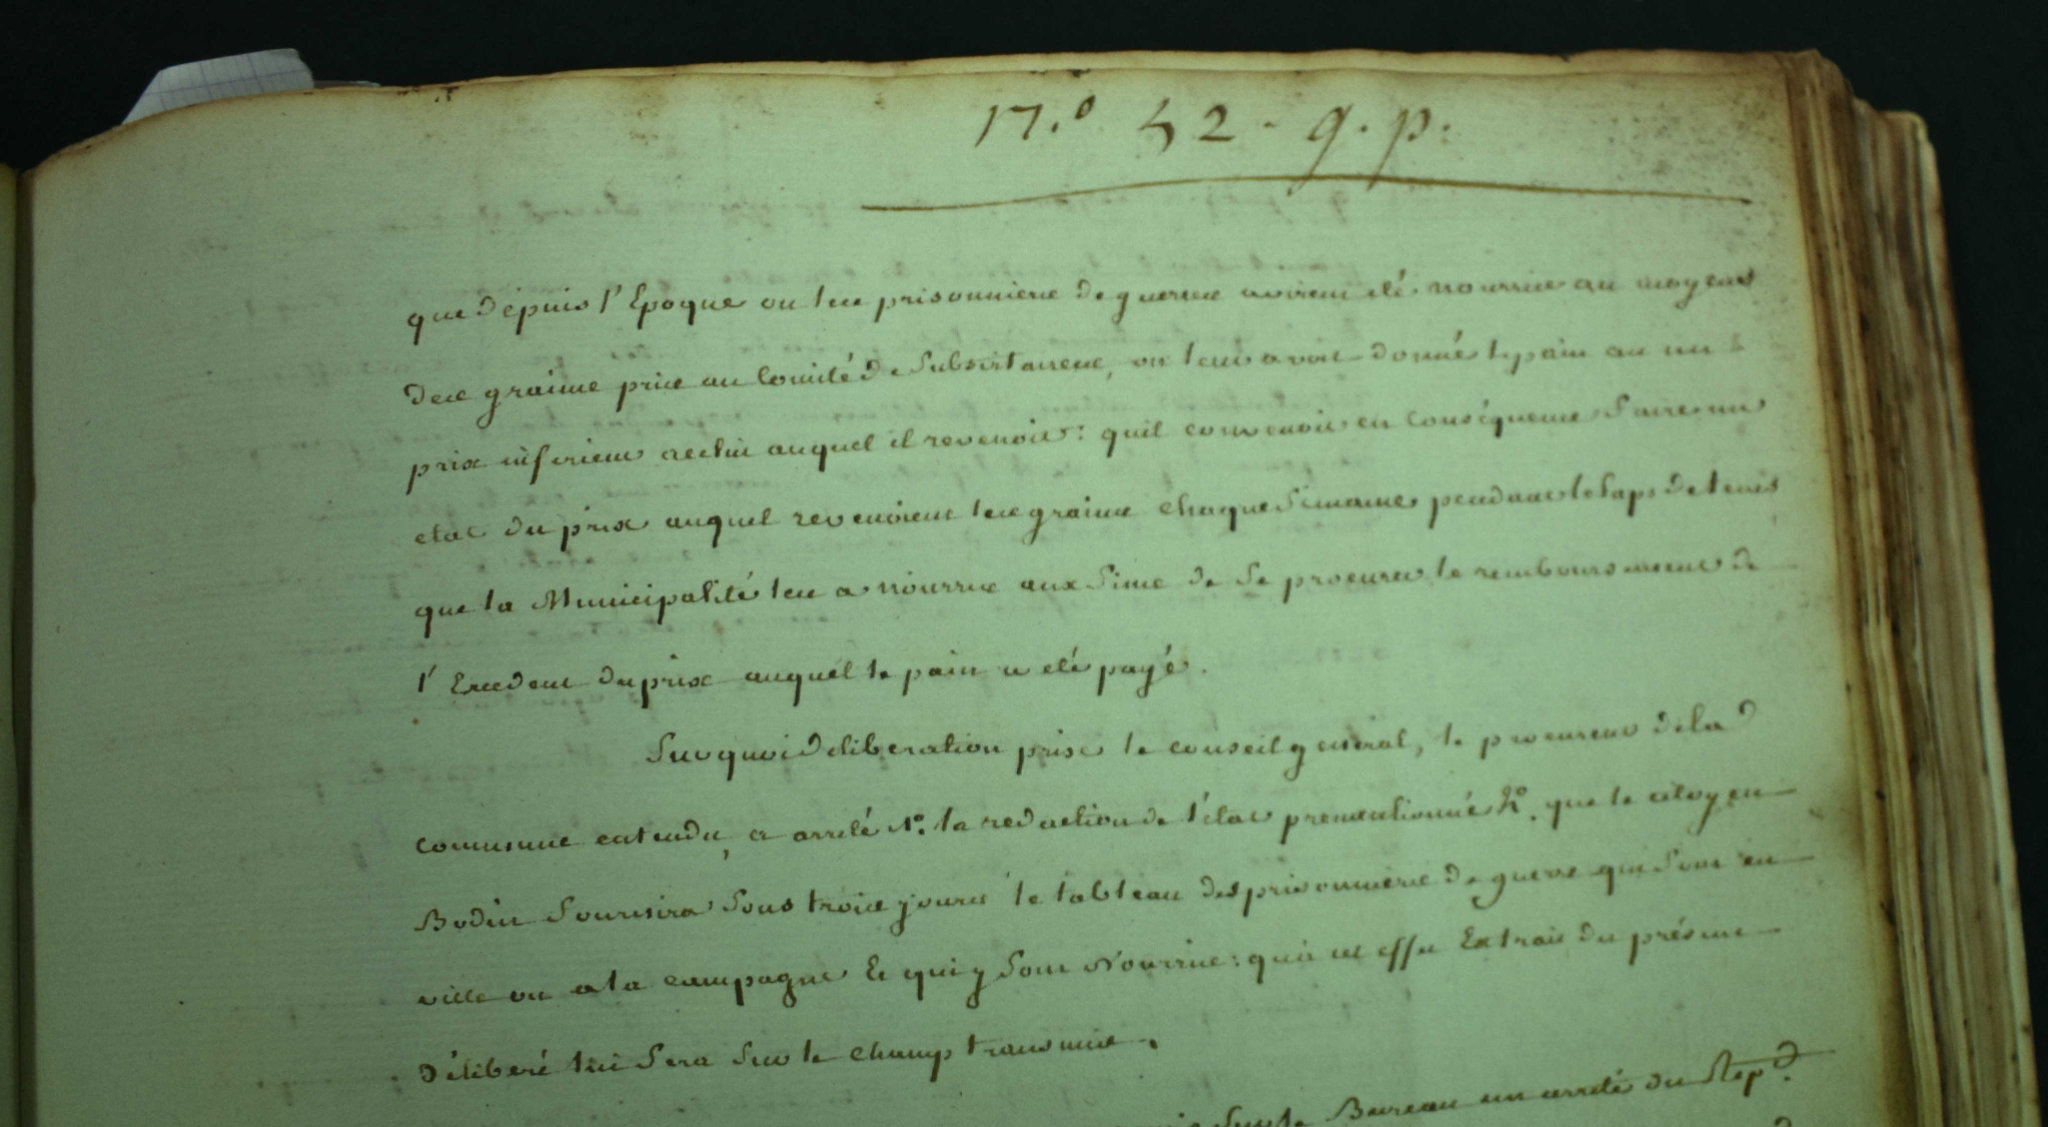 N.º 52 - g. p.
que dépuis l'Epoque ou les prisonniers de guerre avoient eté nourris au moyens
des graines prise au Comité de Subsistances, on leur avoit donné le pain au un
prix inferieur a celui auquel il revenoit: quil convenoit en Conséquence faire un
etat du prix auquel revenoient les graines chaque Semaine pendant le laps de tems
que la Municipalité les a nourris aux fins de Se procurer le remboursement de
l'Excedent du prix auquel le pain a eté payé.
Sur quoi deliberation prise le conseil general, le procureur de la d
commune entendu, a arreté 1º. la redaction de l'état prementionné 2º. que le citoyen
Bodin fournira Sous trois jours le tableau des prisonniers de guerre qui Sont en
ville ou a la campagne Et qui y Sont Nourris: qu'a cet effet Extrait du présent
déliberé lui Sera Sur le champ transmis.
Sur le Bureau un arreté du Rep.